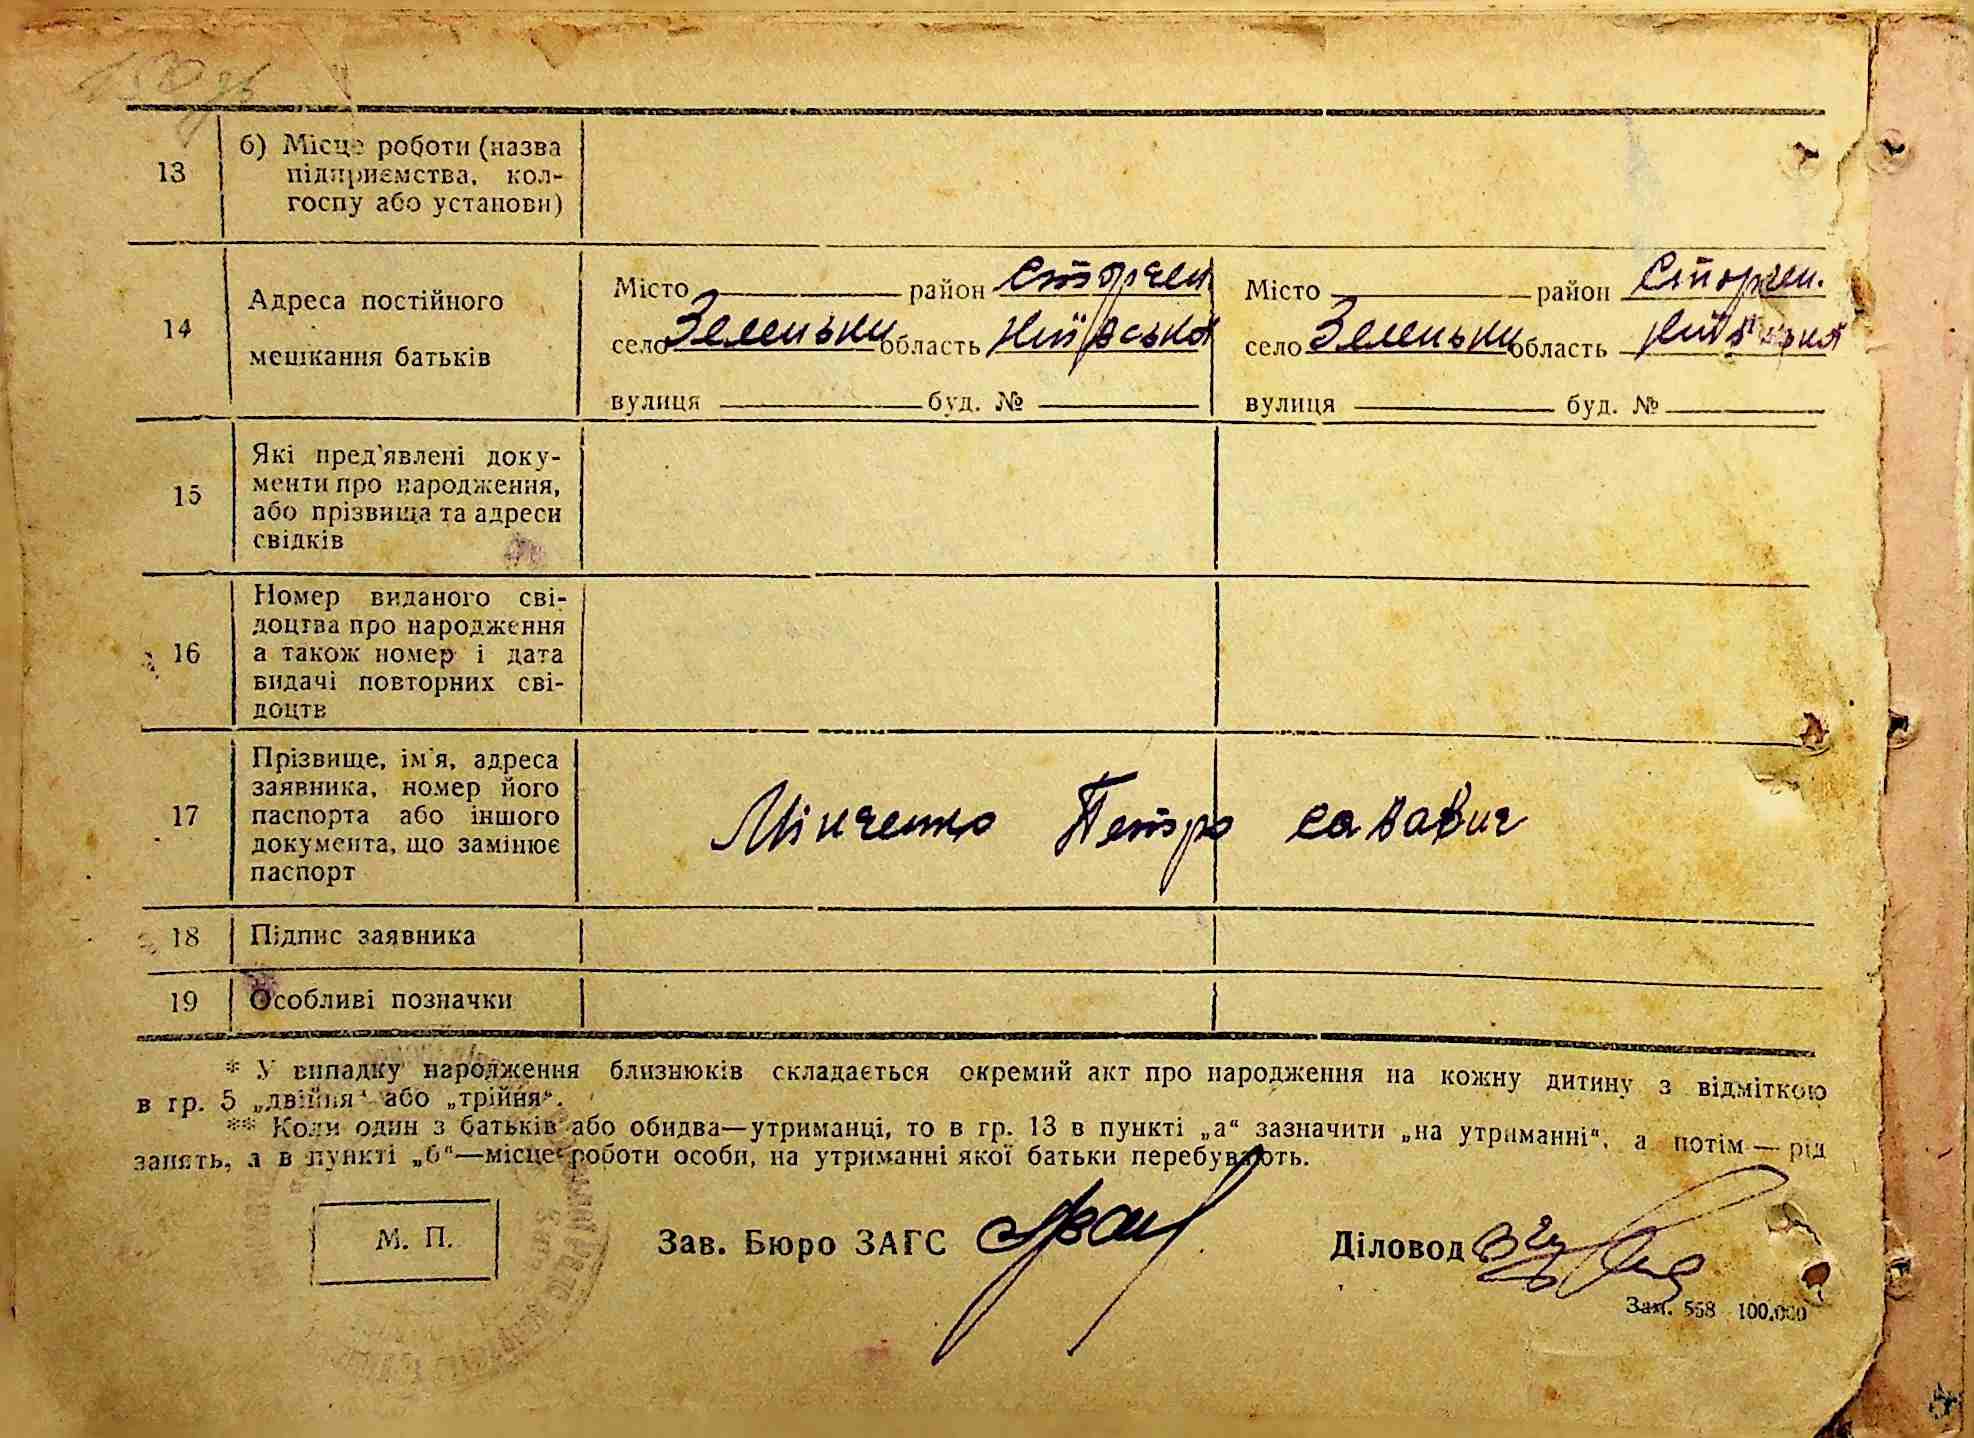 13 б) Місце роботи (назва
підприємства, кол-
госпу або установи)
14 Адреса постійного
мешкання батьків
Місто район Сторчен.
село Зеленьки область Київська
вулиця буд. №
Місто район Сторчен.
село Зеленьки область Київська
вулиця буд. №
15 Які пред'явлені доку-
менти про народження,
або прізвища та адреси
свідків
16 Номер виданого сві-
доцтва про народження
а також номер і дата
видачі повторних сві-
доцтв
17 Прізвище, ім'я, адреса
заявника, номер його
паспорта або іншого
документа, що замінює
паспорт
Мінченко Петро Сававич
18 Підпис заявника
19 Особливі позначки
* У випадку народження близнюків складається окремий акт про народження на кожну дитину з відміткою
в гр. 5 „двійня“ або „трійня“.
** Коли один з батьків або обидва—утриманці, то в гр. 13 в пункті „а“ зазначити „на утриманні“, а потім—рід
занять, а в пункті „б“—місце роботи особи, на утриманні якої батьки перебувають.
М. П.
Зав. Бюро ЗАГС
Діловод
Зам. 558 100.000